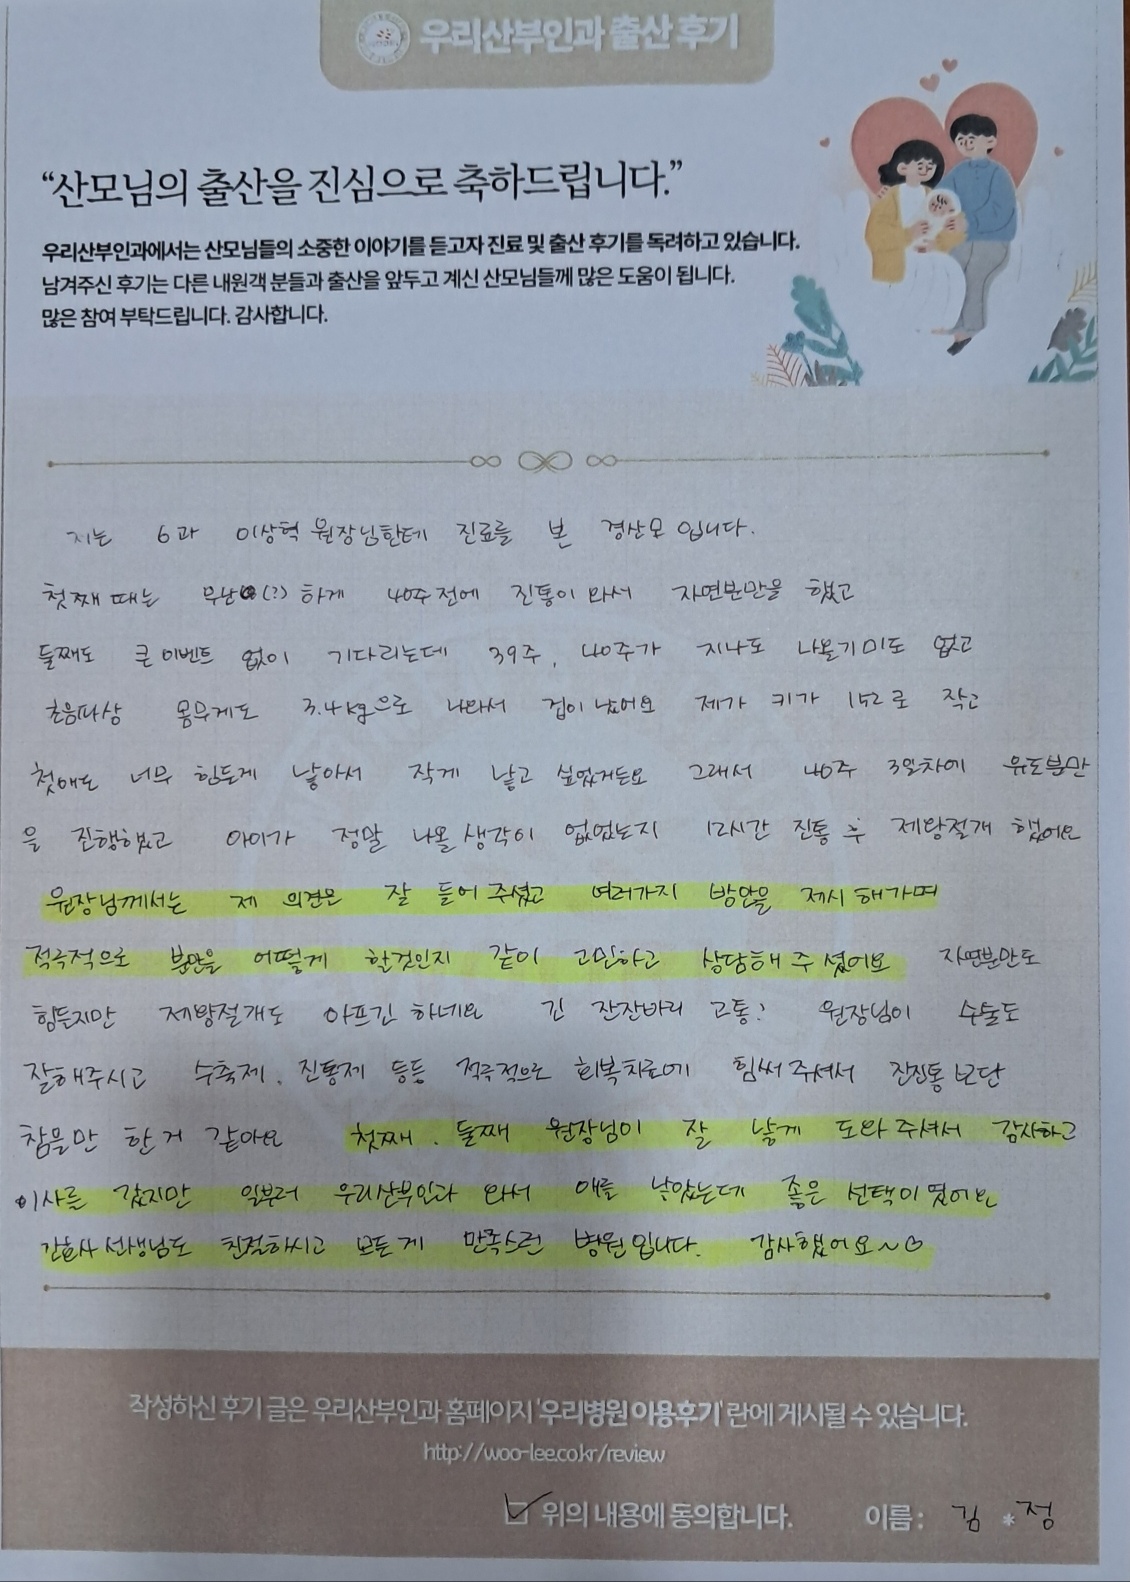 우리산부인과 출산 후기
“산모님의 출산을 진심으로 축하드립니다.”
우리산부인과에서는 산모님들의 소중한 이야기를 듣고자 진료 및 출산 후기를 독려하고 있습니다.
남겨주신 후기는 다른 내원객 분들과 출산을 앞두고 계신 산모님들께 많은 도움이 됩니다.
많은 참여 부탁드립니다. 감사합니다.
저는 6과 이상혁 원장님한테 진료를 본 경산모 입니다.
첫째 때는 무난(?)하게 40주 전에 진통이 와서 자연분만을 했고
둘째도 큰 이벤트 없이 기다리는데 39주, 40주가 지나도 나올기미도 없고
초음파상 몸무게도 3.4kg으로 나와서 겁이 났어요 제가 키가 152로 작고
첫애도 너무 힘들게 낳아서 작게 낳고 싶었거든요 그래서 40주 3일차에 유도분만
을 진행했고 아이가 정말 나올 생각이 없었는지 12시간 진통 후 제왕절개 했어요
원장님께서는 제 의견은 잘 들어 주셨고 여러가지 방안을 제시 해가며
적극적으로 분만을 어떻게 할것인지 같이 고민하고 상담해 주셨어요 자연분만도
힘든지만 제왕절개도 아프긴 하네요 긴 잔잔바리 고통? 원장님이 수술도
잘해주시고 수축제, 진통제 등등 적극적으로 회복치료에 힘써 주셔서 잔진통보단
참을만 한거 같아요 첫째, 둘째 원장님이 잘 낳게 도와주셔서 감사하고
이사를 갔지만 일부러 우리산부인과 와서 애를 낳았는데 좋은 선택이였어요
간호사 선생님도 친절하시고 모든게 만족스런 병원입니다. 감사했어요~♡
작성하신 후기 글은 우리산부인과 홈페이지 '우리병원 이용후기' 란에 게시될 수 있습니다.
http://woo-lee.co.kr/review
위의 내용에 동의합니다. 이름 : 김 * 정